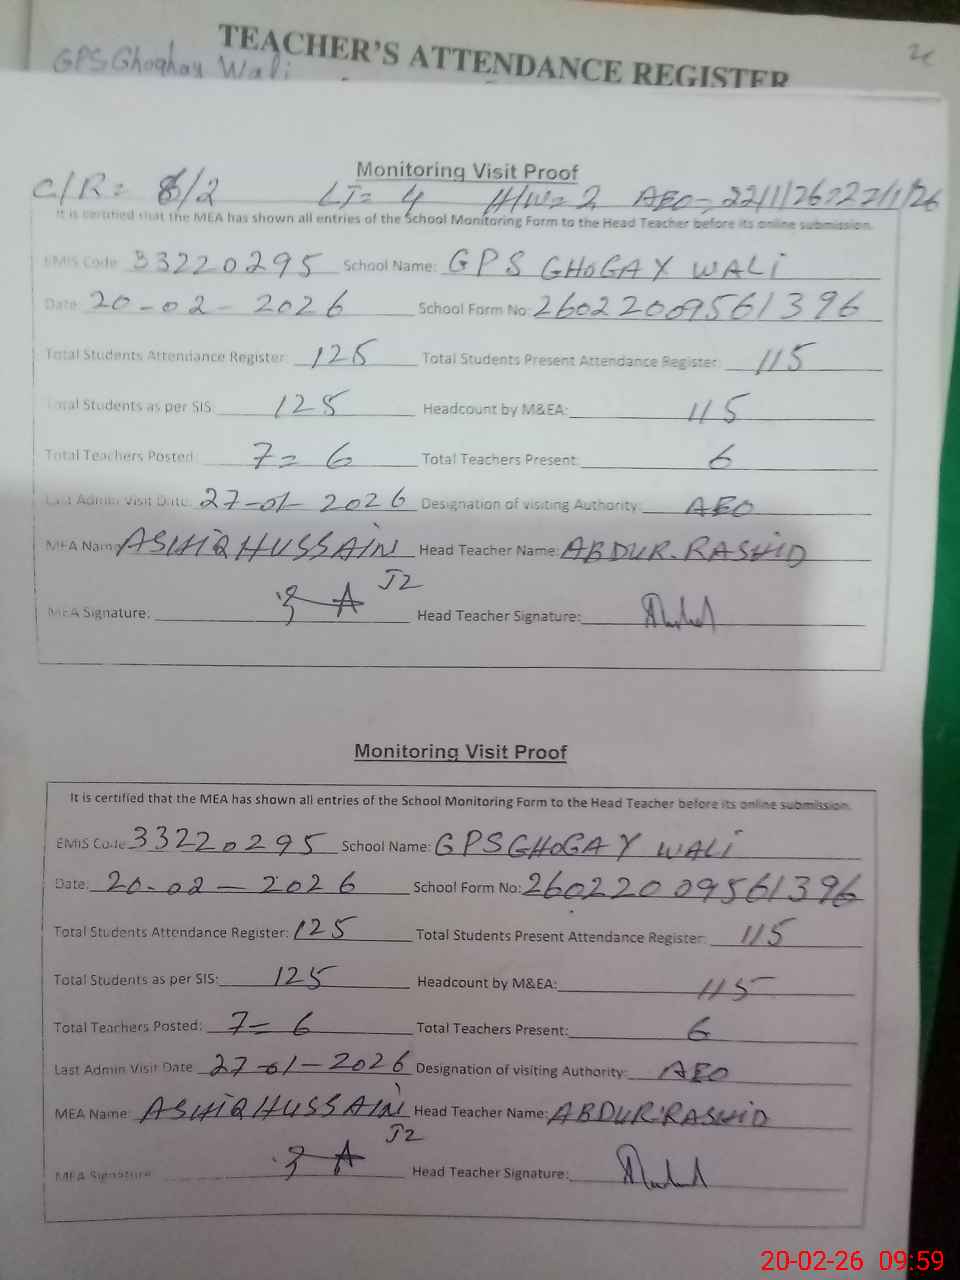 TEACHER'S ATTENDANCE REGISTER
GPS Ghoghay Wali
Monitoring Visit Proof
C/R = 8/2 LT= 4 H/W= 2 AEO= 22/1/26, 27/1/26
It is certified that the MEA has shown all entries of the School Monitoring Form to the Head Teacher before its online submission.
EMIS Code 33220295 School Name: GPS GHOGAY WALi
Date: 20-02-2026 School Form No: 26022009561396
Total Students Attendance Register: 125 Total Students Present Attendance Register: 115
Total Students as per SIS: 125 Headcount by M&EA: 115
Total Teachers Posted: 7= 6 Total Teachers Present: 6
Last Admin Visit Date: 27-01-2026 Designation of visiting Authority: AEO
MEA Name ASHIQ HUSSAIN Head Teacher Name: ABDUR.RASHiD
J2
MEA Signature: Head Teacher Signature:
Monitoring Visit Proof
It is certified that the MEA has shown all entries of the School Monitoring Form to the Head Teacher before its online submission.
EMIS Code 33220295 School Name: GPS GHOGAY WALi
Date: 20-02-2026 School Form No: 26022009561396
Total Students Attendance Register: 125 Total Students Present Attendance Register: 115
Total Students as per SIS: 125 Headcount by M&EA: 115
Total Teachers Posted: 7= 6 Total Teachers Present: 6
Last Admin Visit Date 27-01-2026 Designation of visiting Authority: AEO
MEA Name: ASHIQ HUSSAIN Head Teacher Name: ABDUR.RASHiD
J2
MEA Signature Head Teacher Signature:
20-02-26 09:59